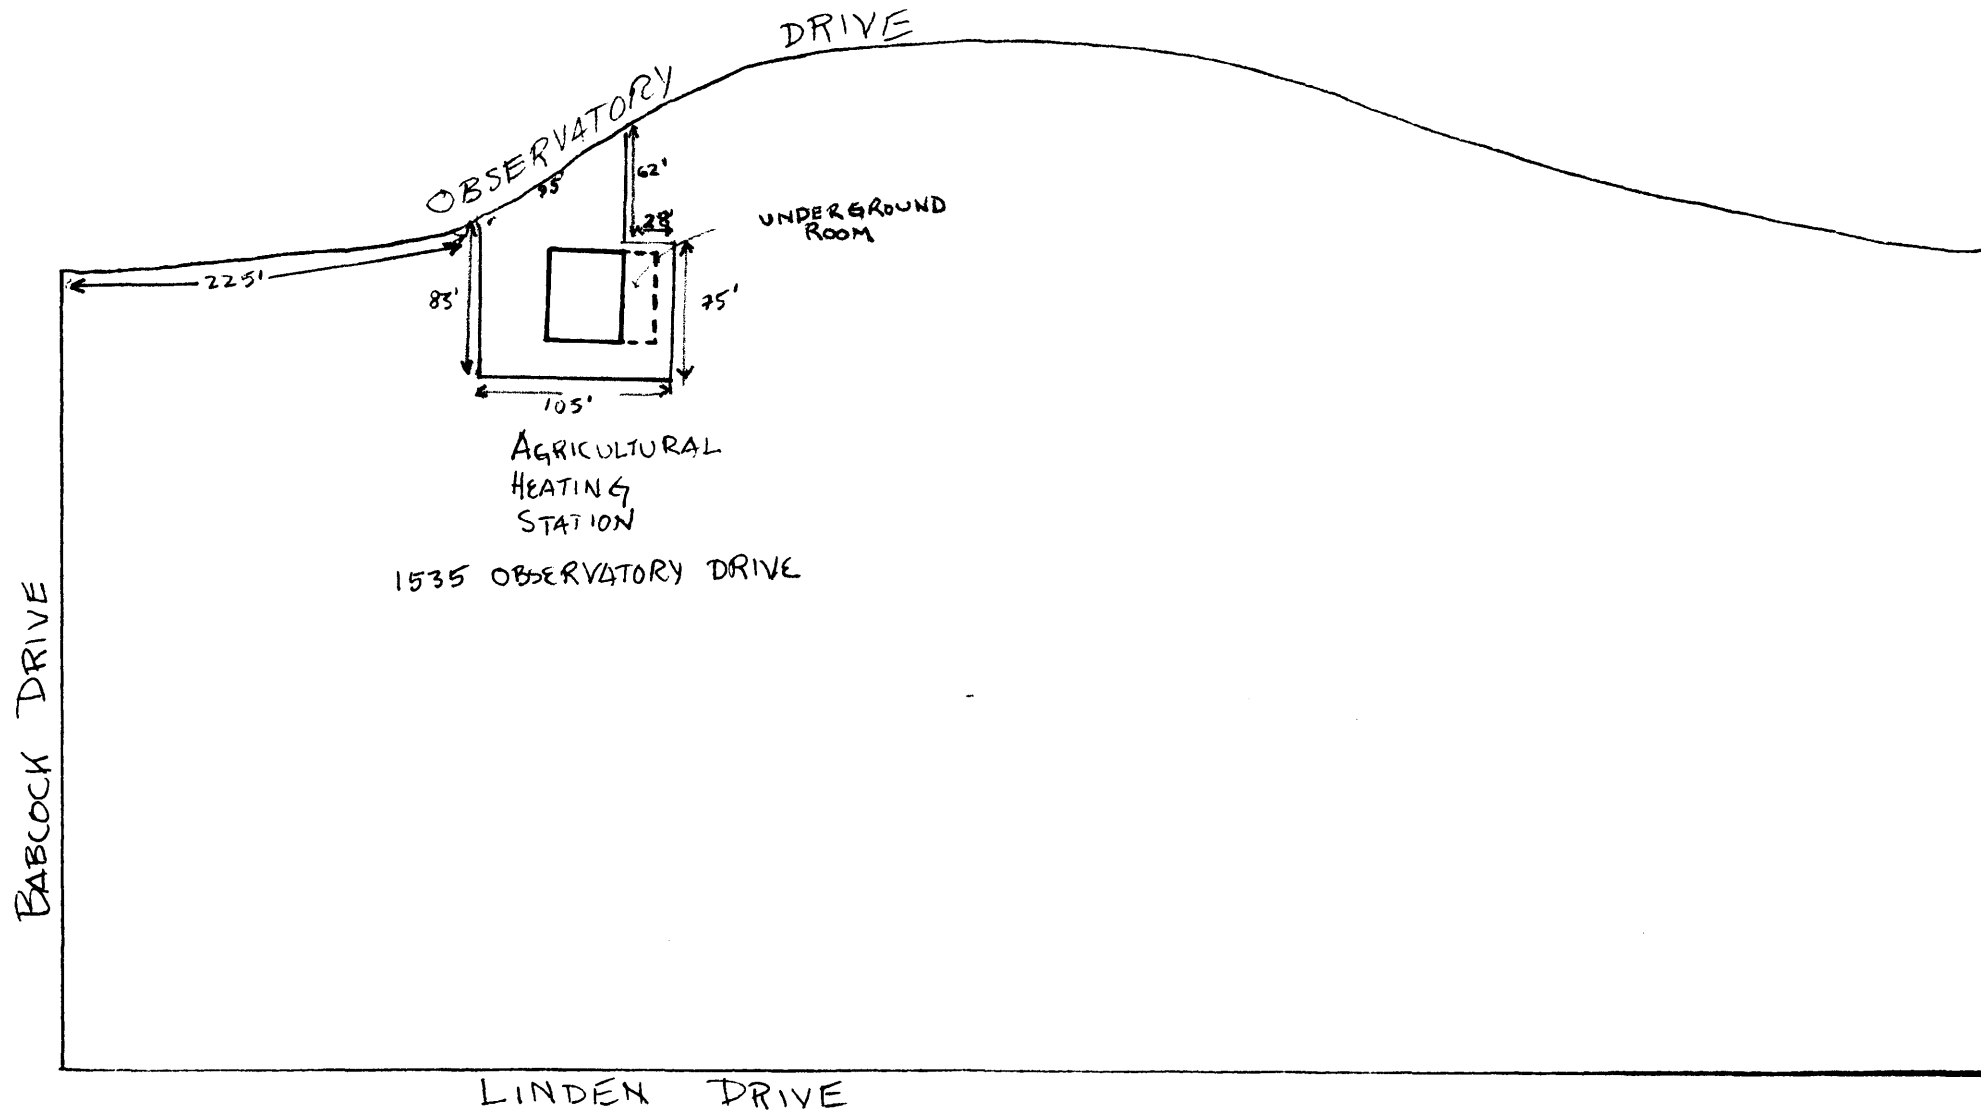 DRIVE
OBSERVATORY
95'
62'
28'
UNDERGROUND
ROOM
225'
83'
75'
105'
AGRICULTURAL
HEATING
STATION
1535 OBSERVATORY DRIVE
BABCOCK DRIVE
LINDEN DRIVE